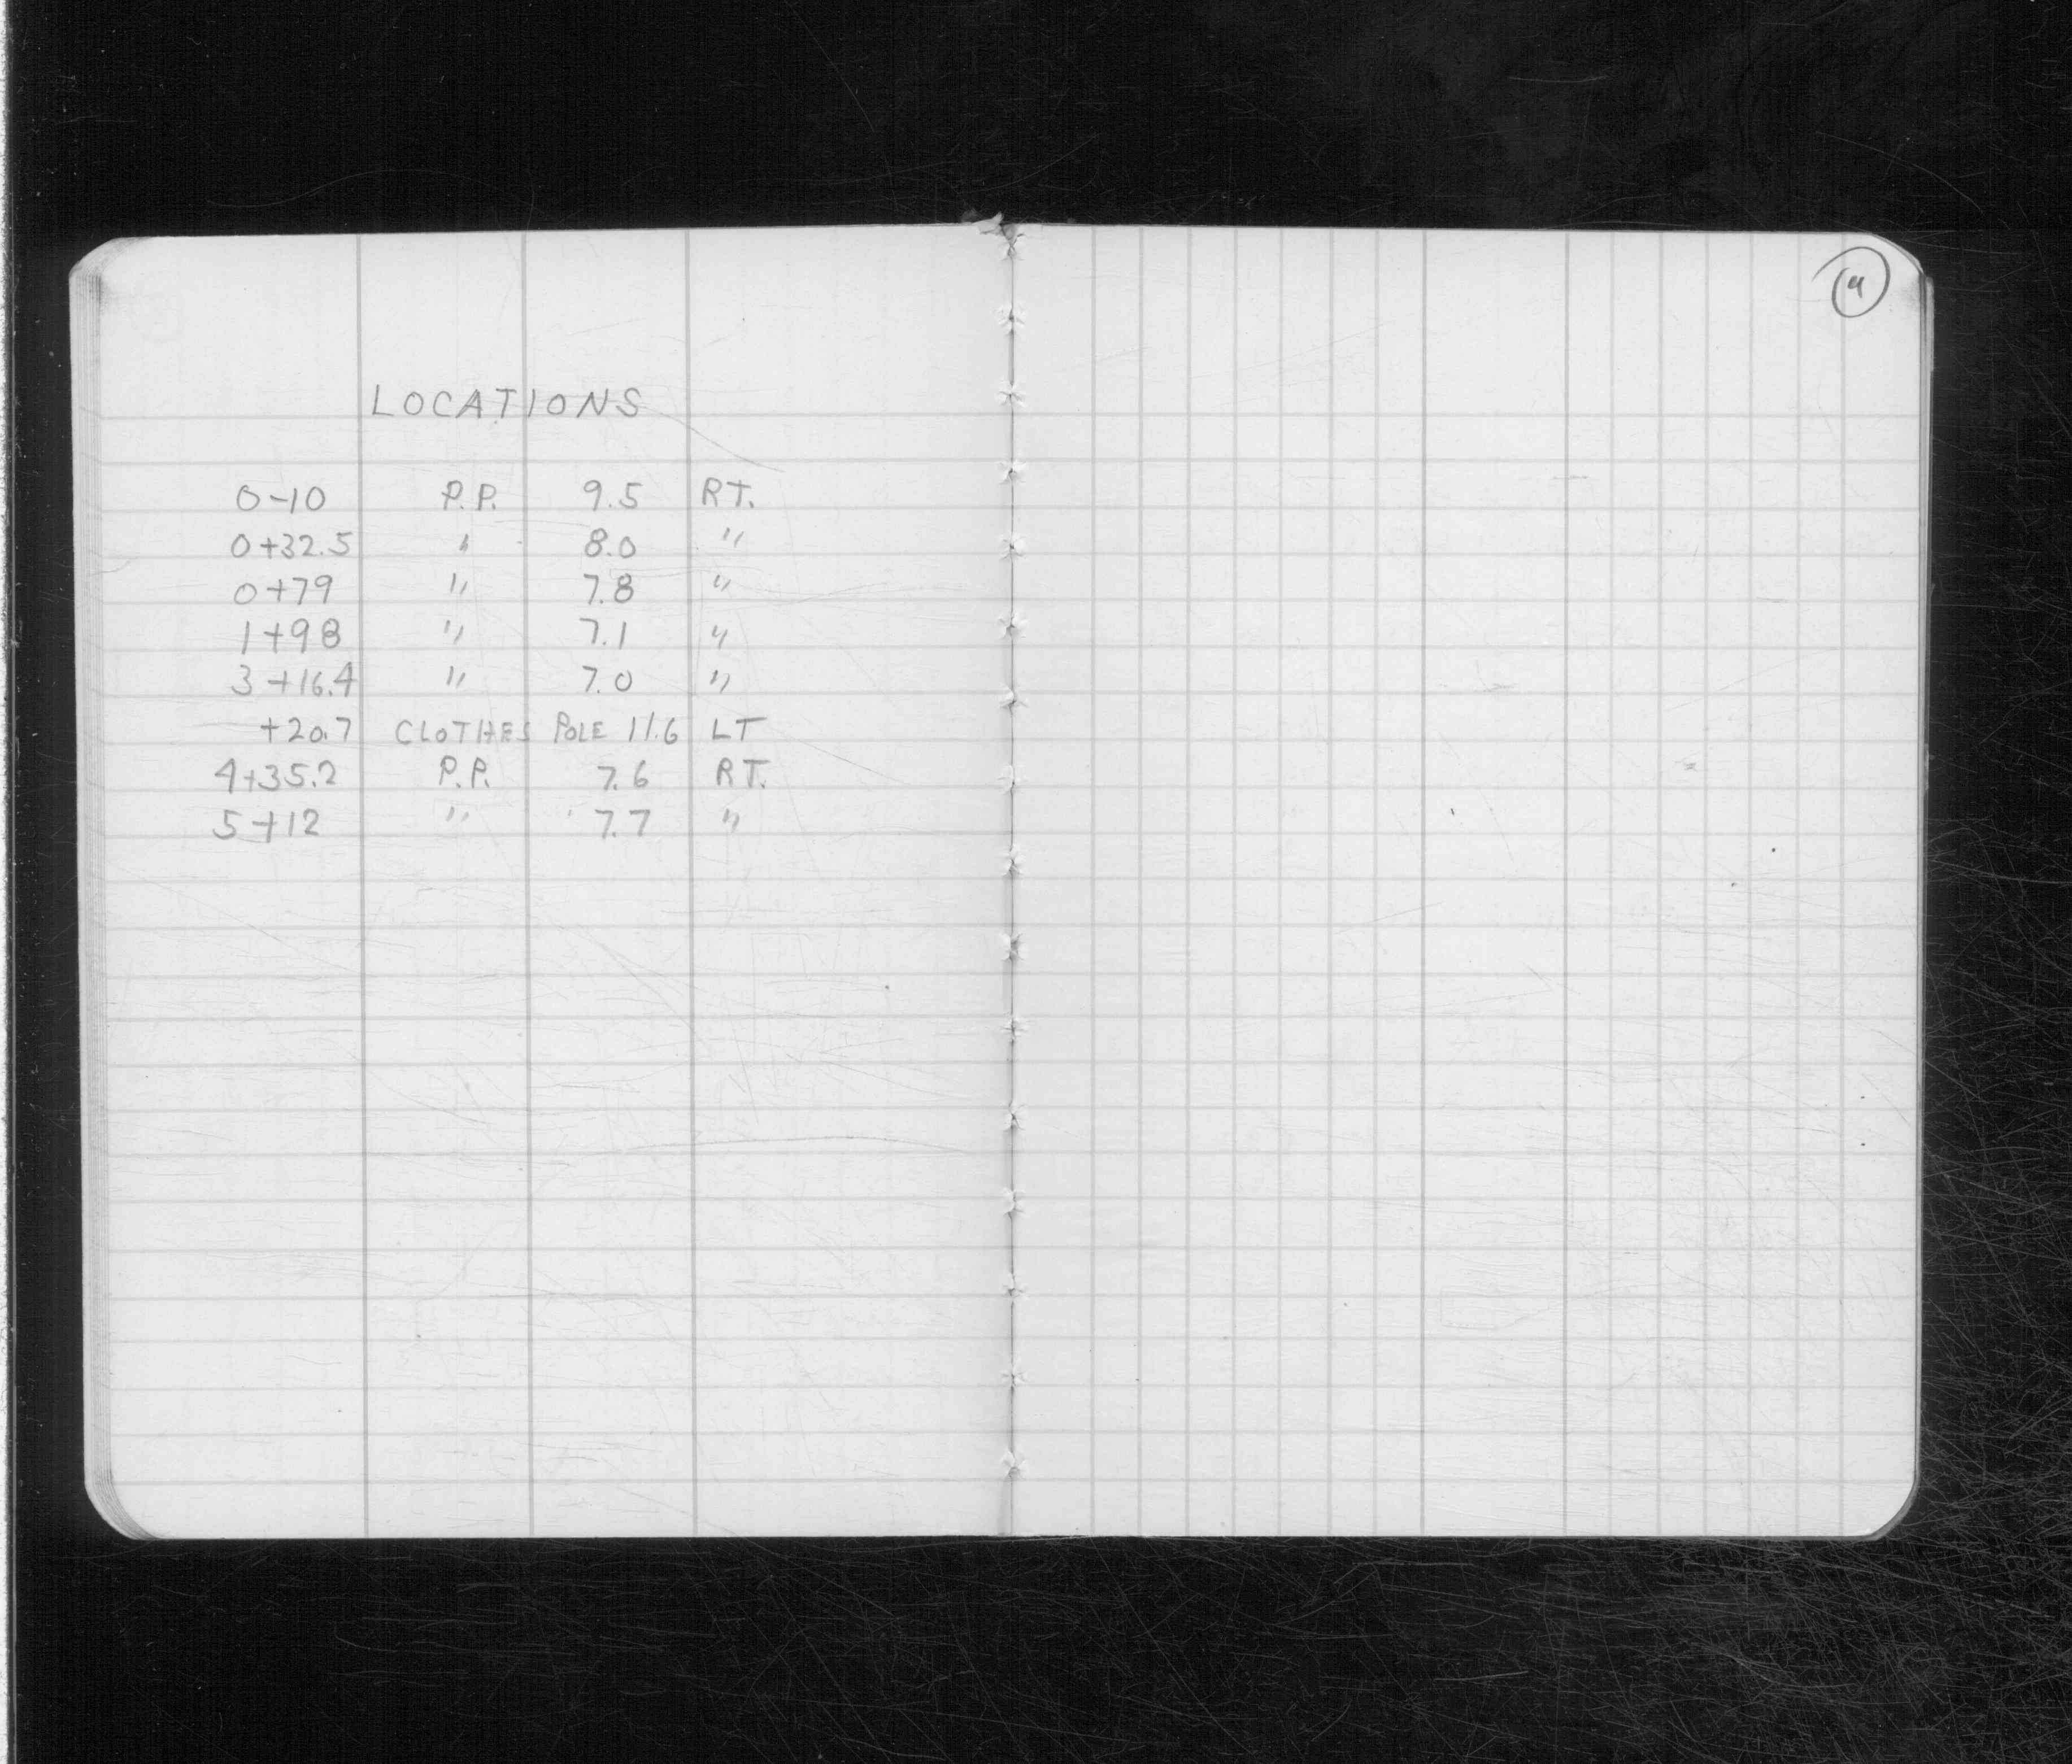 LOCATIONS
0-10 P.P. 9.5 RT.
0+32.5 " 8.0 "
0+79 " 7.8 "
1+98 " 7.1 "
3+16.4 " 7.0 "
+20.7 CLOTHES POLE 11.6 LT
4+35.2 P.P. 7.6 RT.
5+12 " 7.7 "